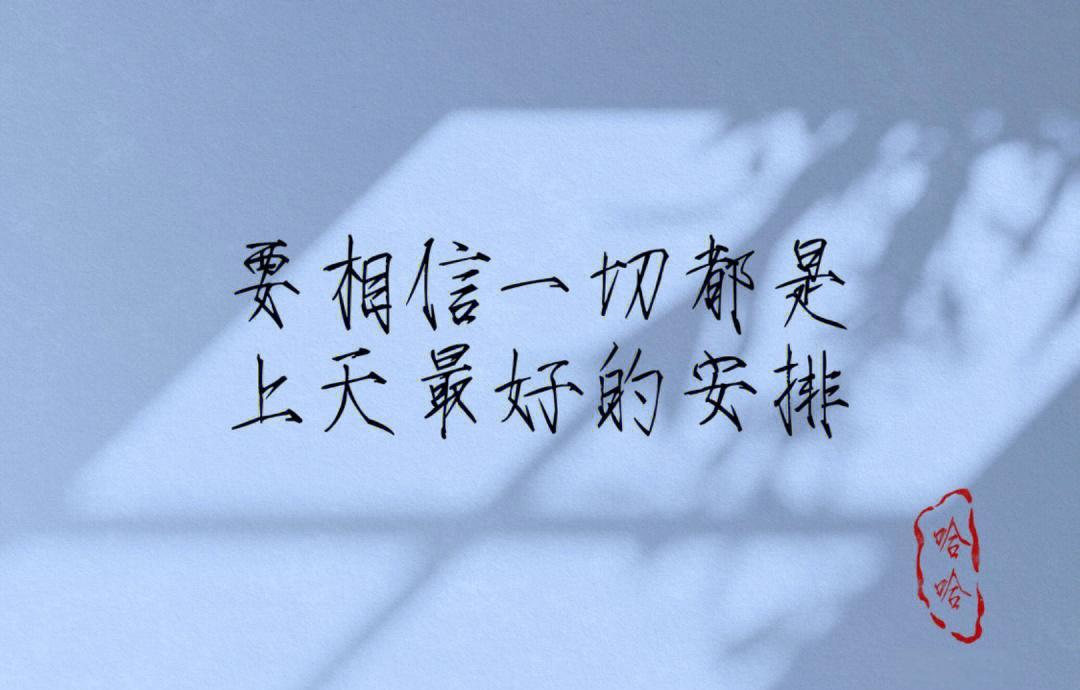 要相信一切都是
上天最好的安排
哈哈